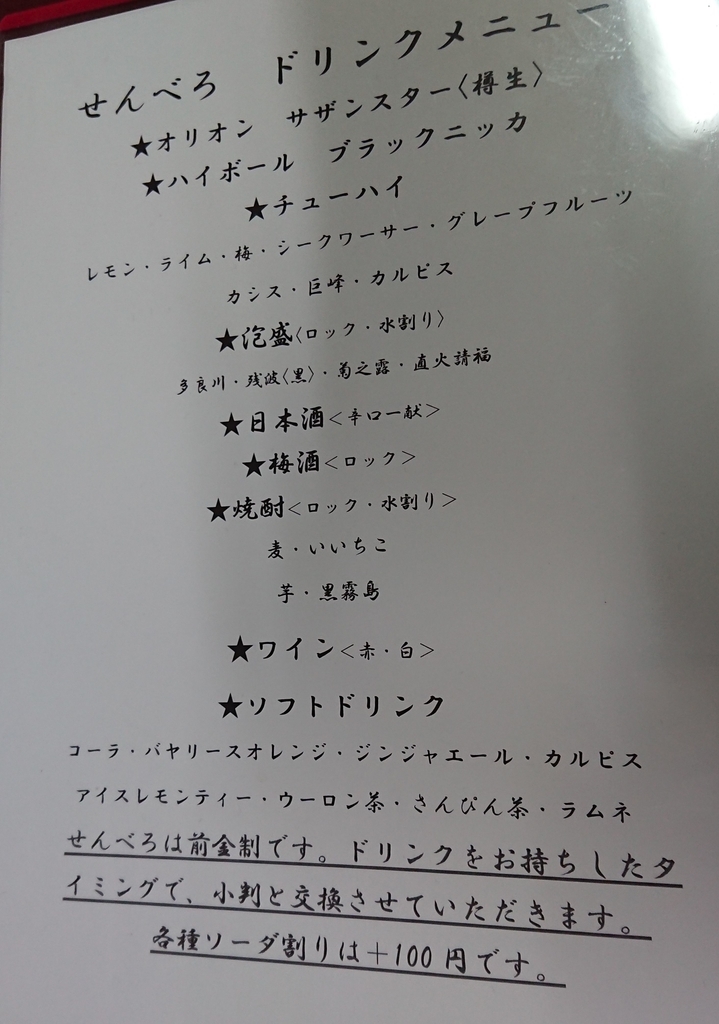 せんべろ ドリンクメニュー
★オリオン サザンスター〈樽生〉
★ハイボール ブラックニッカ
★チューハイ
レモン・ライム・梅・シークワーサー・グレープフルーツ
カシス・巨峰・カルピス
★泡盛〈ロック・水割り〉
多良川・残波〈黒〉・菊之露・直火請福
★日本酒＜辛口一献＞
★梅酒＜ロック＞
★焼酎＜ロック・水割り＞
麦・いいちこ
芋・黒霧島
★ワイン＜赤・白＞
★ソフトドリンク
コーラ・バヤリースオレンジ・ジンジャエール・カルピス
アイスレモンティー・ウーロン茶・さんぴん茶・ラムネ
せんべろは前金制です。ドリンクをお持ちしたタ
イミングで、小判と交換させていただきます。
各種ソーダ割りは＋100円です。